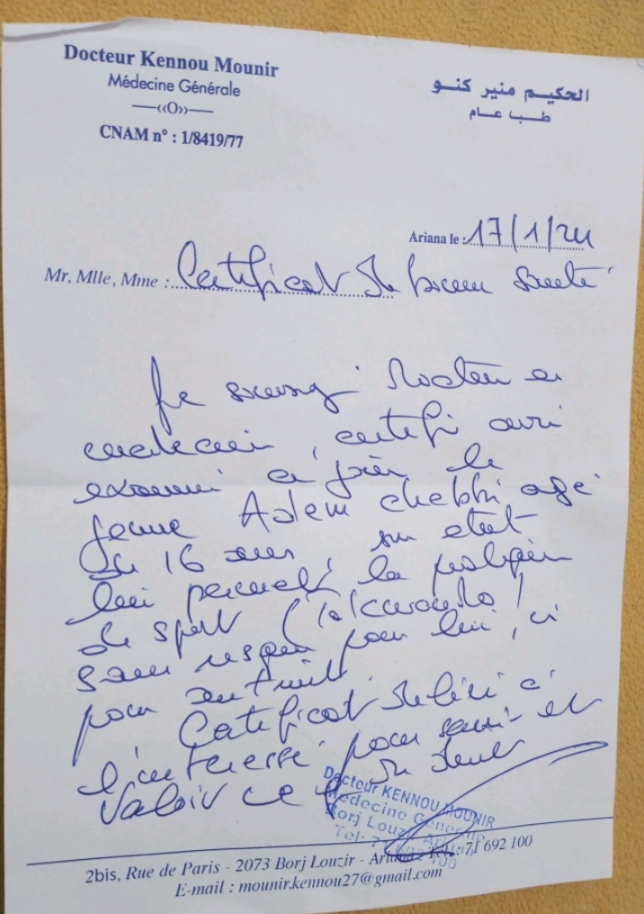 Docteur Kennou Mounir
Médecine Générale
—((O))—
CNAM n° : 1/8419/77
الحكيم منير كنو
طب عام
Ariana le : 17/1/24
Mr, Mlle, Mme : Certificat de bonne Santé
Je soussigné Docteur en
médecine, certifie avoir
examiné ce jour le
jeune Adem chebbi agé
de 16 ans, son état
lui permet la pratique
de sport
sans risque pour lui, ni
pour autrui
Certificat délivré à
l'intéressé pour servir et
Valoir ce de droit
Docteur KENNOU MOUNIR
Médecine Générale
Borj Louzir Ariana
Tel: 7
2bis, Rue de Paris - 2073 Borj Louzir - Ariana 71 692 100
E-mail : mounir.kennou27@gmail.com